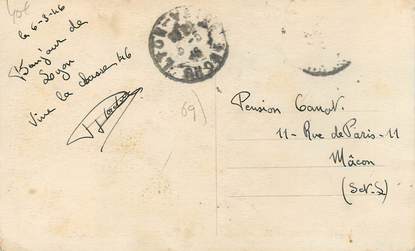 le 6-3-46
Bonjour de
Lyon
Vive la classe 46
69)
Pension Canot.
11 - Rue de Paris - 11
Mâcon
(S-et-L)